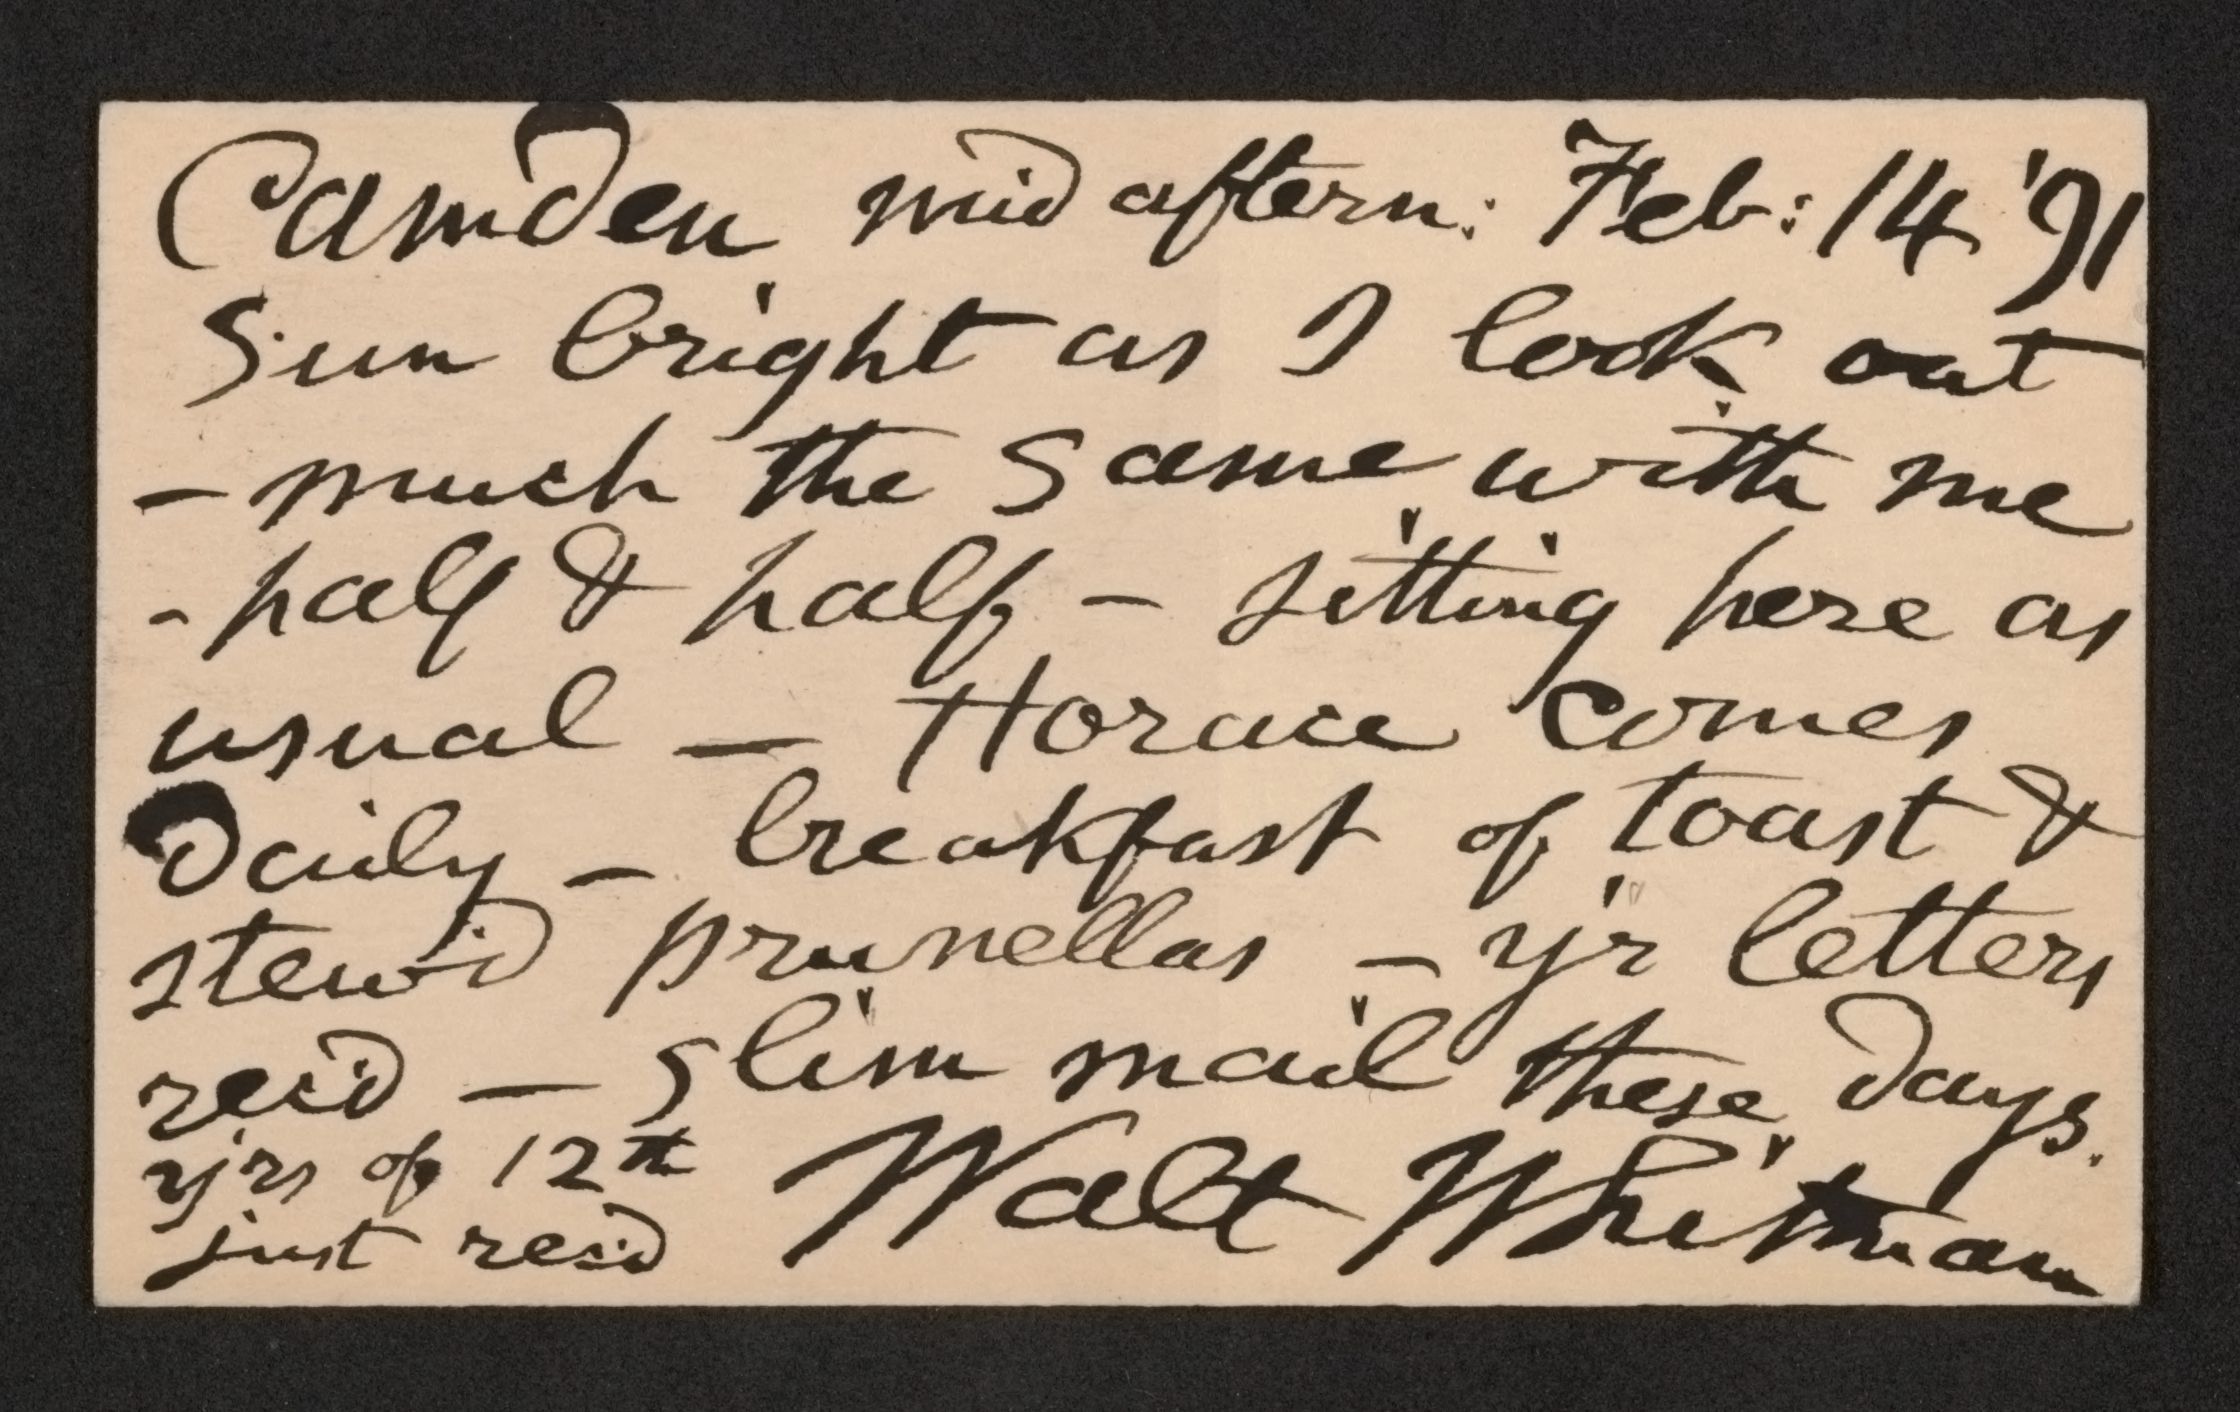 Camden mid aftern: Feb: 14 '91
Sun bright as I look out
- much the same with me
- half & half - sitting here as
usual - Horace comes
daily - breakfast of toast &
stew'd prunellas - y'r letters
rec'd - slim mail these days.
y'rs of 12th
just rec'd
Walt Whitman